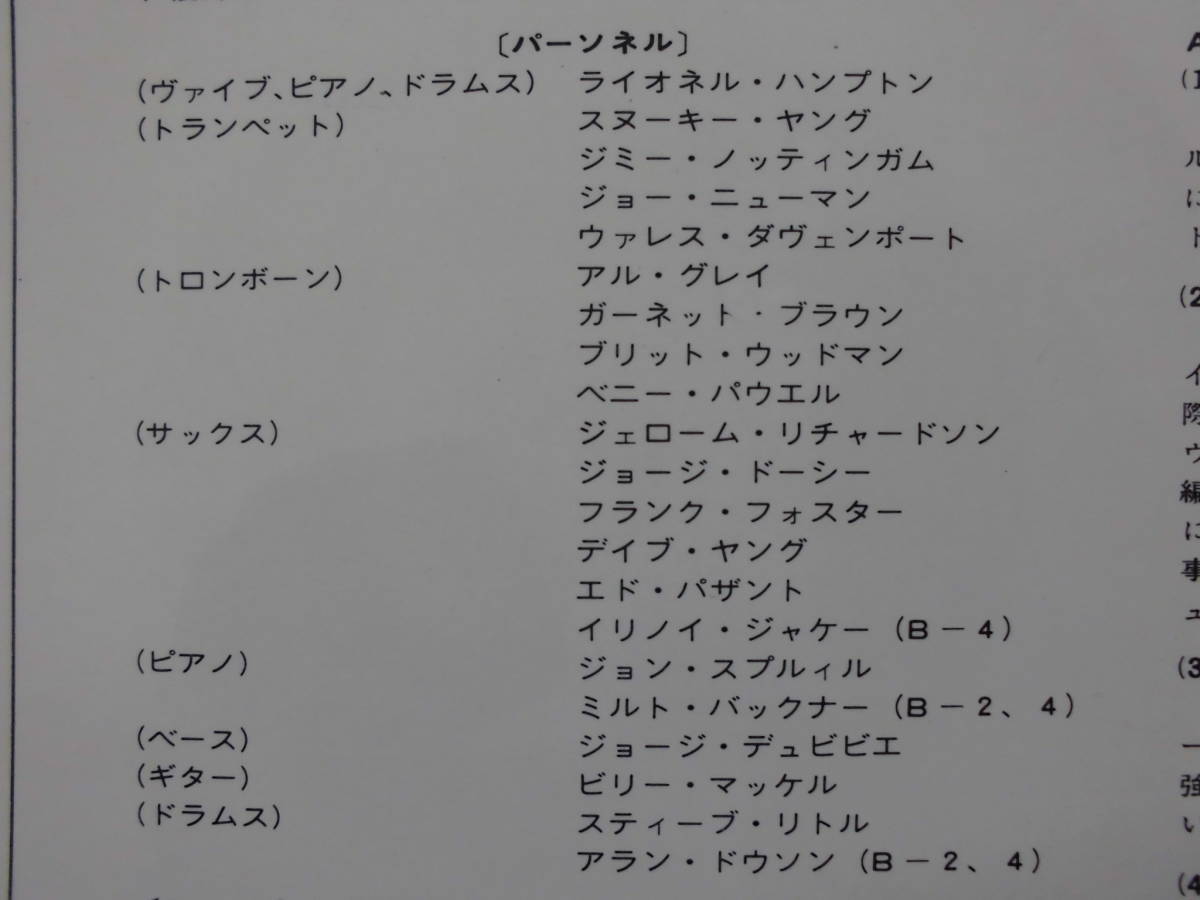 〔パーソネル〕
(ヴァイブ、ピアノ、ドラムス) ライオネル・ハンプトン
(トランペット) スヌーキー・ヤング
ジミー・ノッティンガム
ジョー・ニューマン
ウァレス・ダヴェンポート
(トロンボーン) アル・グレイ
ガーネット・ブラウン
ブリット・ウッドマン
ベニー・パウエル
(サックス) ジェローム・リチャードソン
ジョージ・ドーシー
フランク・フォスター
デイブ・ヤング
エド・パザント
イリノイ・ジャケー (B-4)
(ピアノ) ジョン・スプルィル
ミルト・バックナー (B-2、4)
(ベース) ジョージ・デュビビエ
(ギター) ビリー・マッケル
(ドラムス) スティーブ・リトル
アラン・ドウソン (B-2、4)
A
(1
ル
に
ト
(2
イ
際
ウ
編
に
事
ュ
(3
一
強
い
(4